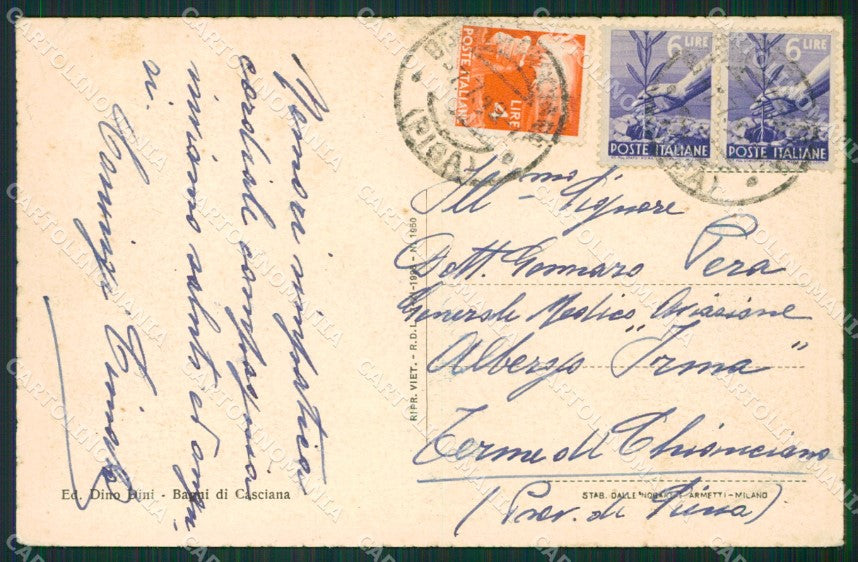 Memori simpatica
cordiale compagnia
inviamo saluti ed augu-
ri.
POSTE ITALIANE
LIRE
4
6 LIRE
POSTE ITALIANE
6 LIRE
POSTE ITALIANE
(PISA)
Ill. Signore
Dott. Gennaro Pera
Generale Medico Aviazione
Albergo "Irma"
Terme di Chianciano
(Prov. di Siena)
RIPR. VIET. - R.D.L. - N. 1950
Ed. Dino Bini - Bagni di Casciana
STAB. DALLE NOGARE E ARMETTI - MILANO
CARTOLINOMANIA